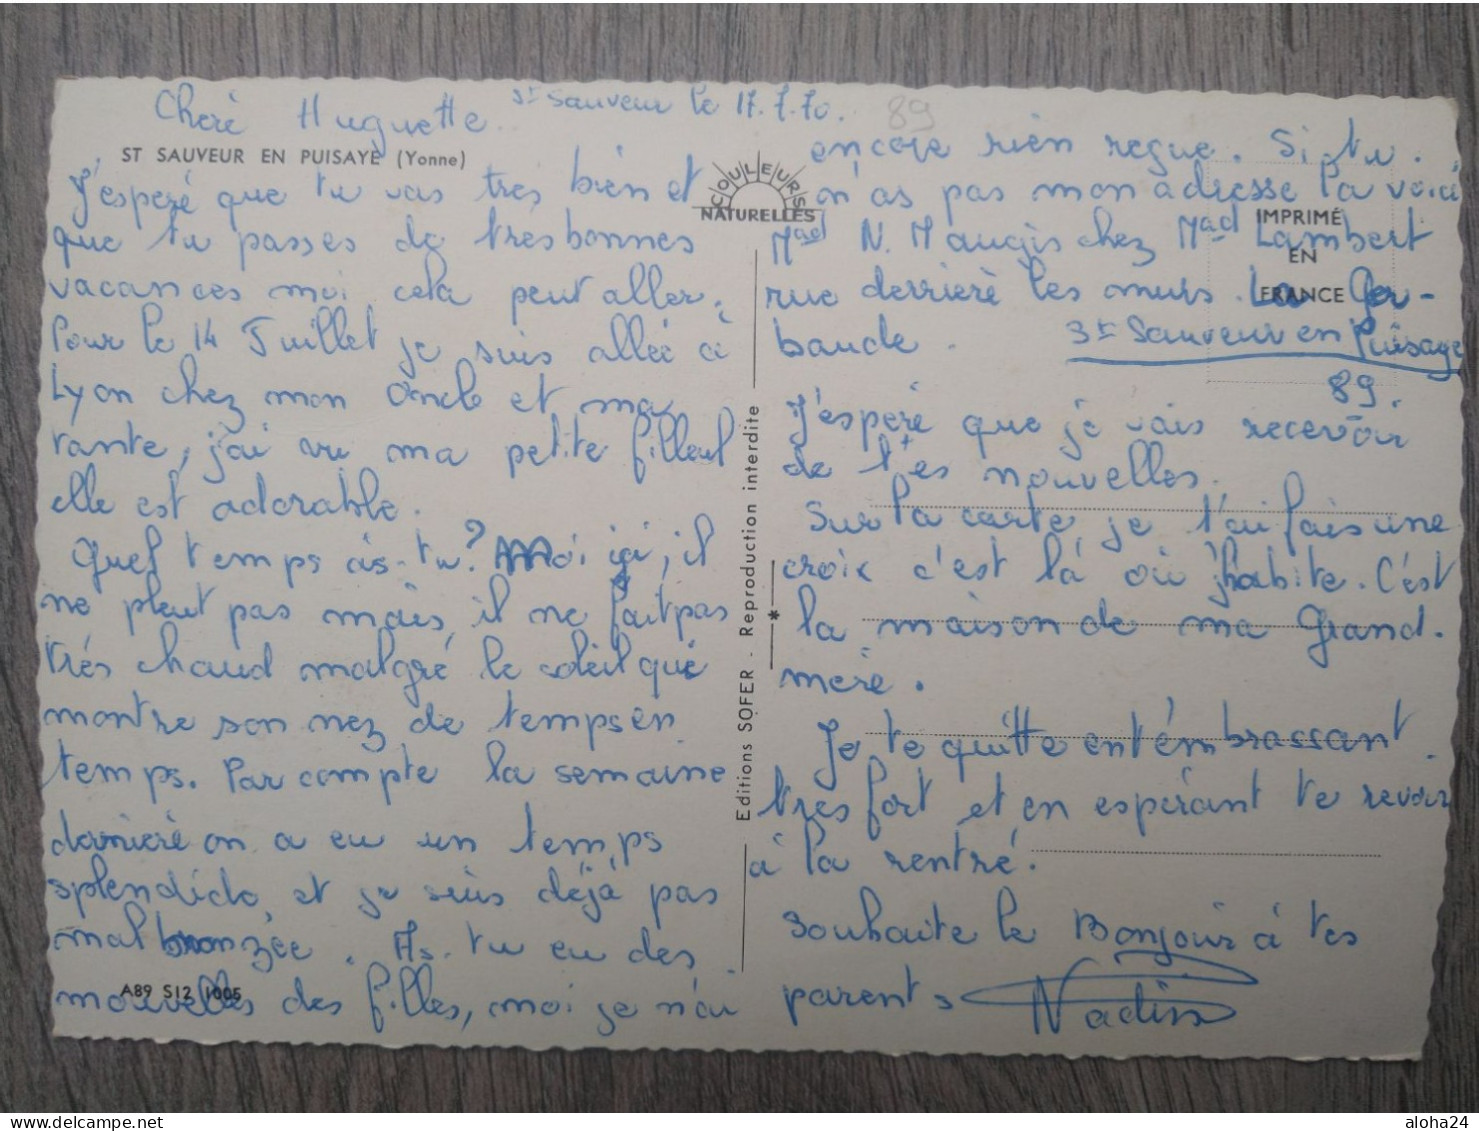 St Sauveur le 17.7.70.
89
Cheré Huguette.
ST SAUVEUR EN PUISAYE (Yonne)
J'esperé que tu vas tres bien et
que tu passes de tres bonnes
vacances moi, cela peut aller.
Pour le 14 Juillet je suis allée à
Lyon chez mon Oncle et ma
tante, j'ai vu ma petite filleul
elle est adorable.
Quel temps as-tu? Moi içi, il
ne pleut pas mais, il ne fait pas
très chaud malgré le soleil qui
montre son nez de temps en
temps. Par compte la semaine
dernieré on a eu un temps
splendide, et je suis déjà pas
mal bronzée. As-tu eu des
nouvelles des filles, moi je n'ai
A89 S12 1005
COULEURS
NATURELLES
Editions SOFER - Reproduction interdite
*
IMPRIMÉ
EN
FRANCE
encore rien reçue. Si tu
n'as pas mon adresse la voici
Mad N. Maugis chez Mad Lambert
rue derrieré les murs. La Ger-
baude. St Sauveur en Puisaye
89.
J'esperé que je vais recevoir
de t'es nouvelles.
Sur la carte, je t'ai fais une
croix c'est là où j'habite. C'est
la maison de ma Grand.
meré.
Je te quitte ent émbrassant
tres fort et en espérant te revoir
à la rentré.
Souhaite le Bonjour à tes
parents
Nadine
aloha24